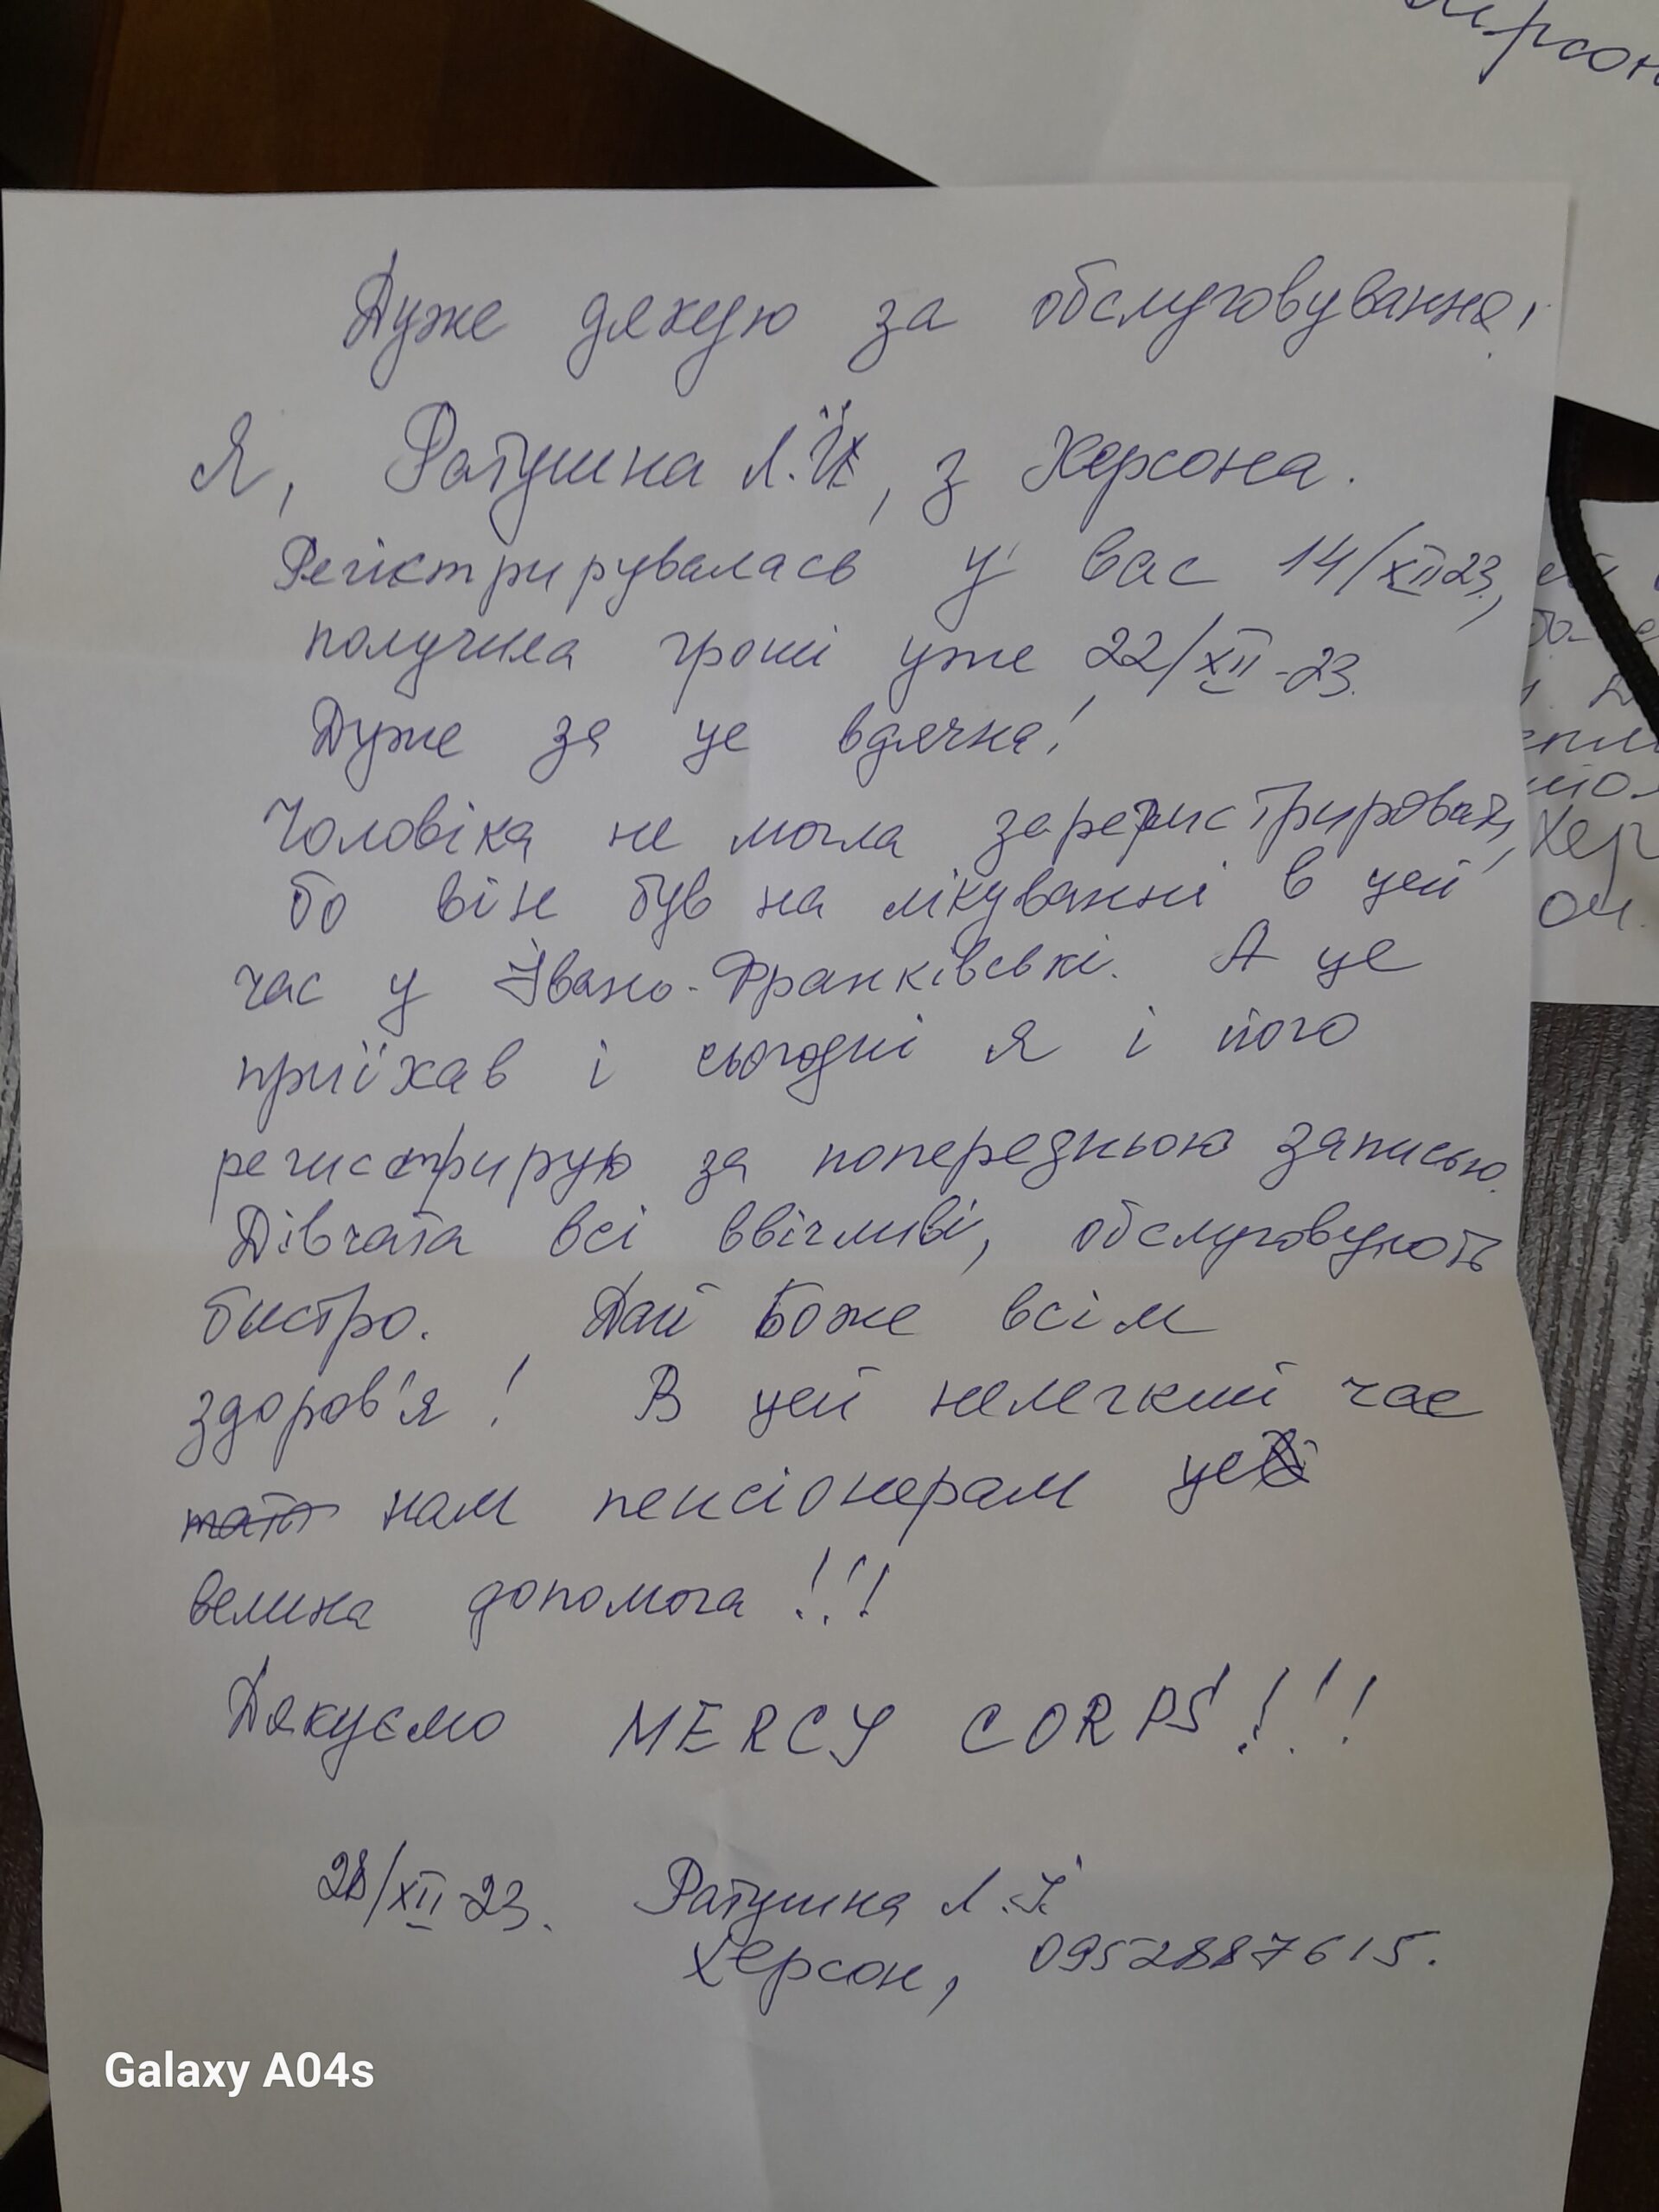 Херсон
Дуже дякую за обслуговування!
Я, Ратушна Л.Й, з Херсона.
Регістрирувалась у вас 14/XII 23,
получила гроші уже 22/XII-23.
Дуже за це вдячна!
Чоловіка не могла зарегистрировать,
бо він був на лікуванні в цей
час у Івано-Франківські. А це
приїхав і сьогодні я і його
регистрирую за попередньою записью.
Дівчата всі ввічливі, обслуговують
бистро. Дай Боже всім
здоров'я! В цей нелегкий час
нам пенсіонерам це
велика допомога!!!
Дякуємо MERCY CORPS!!!
28/XII-23. Ратушна Л.І
Херсон, 0952887615.
Galaxy A04s